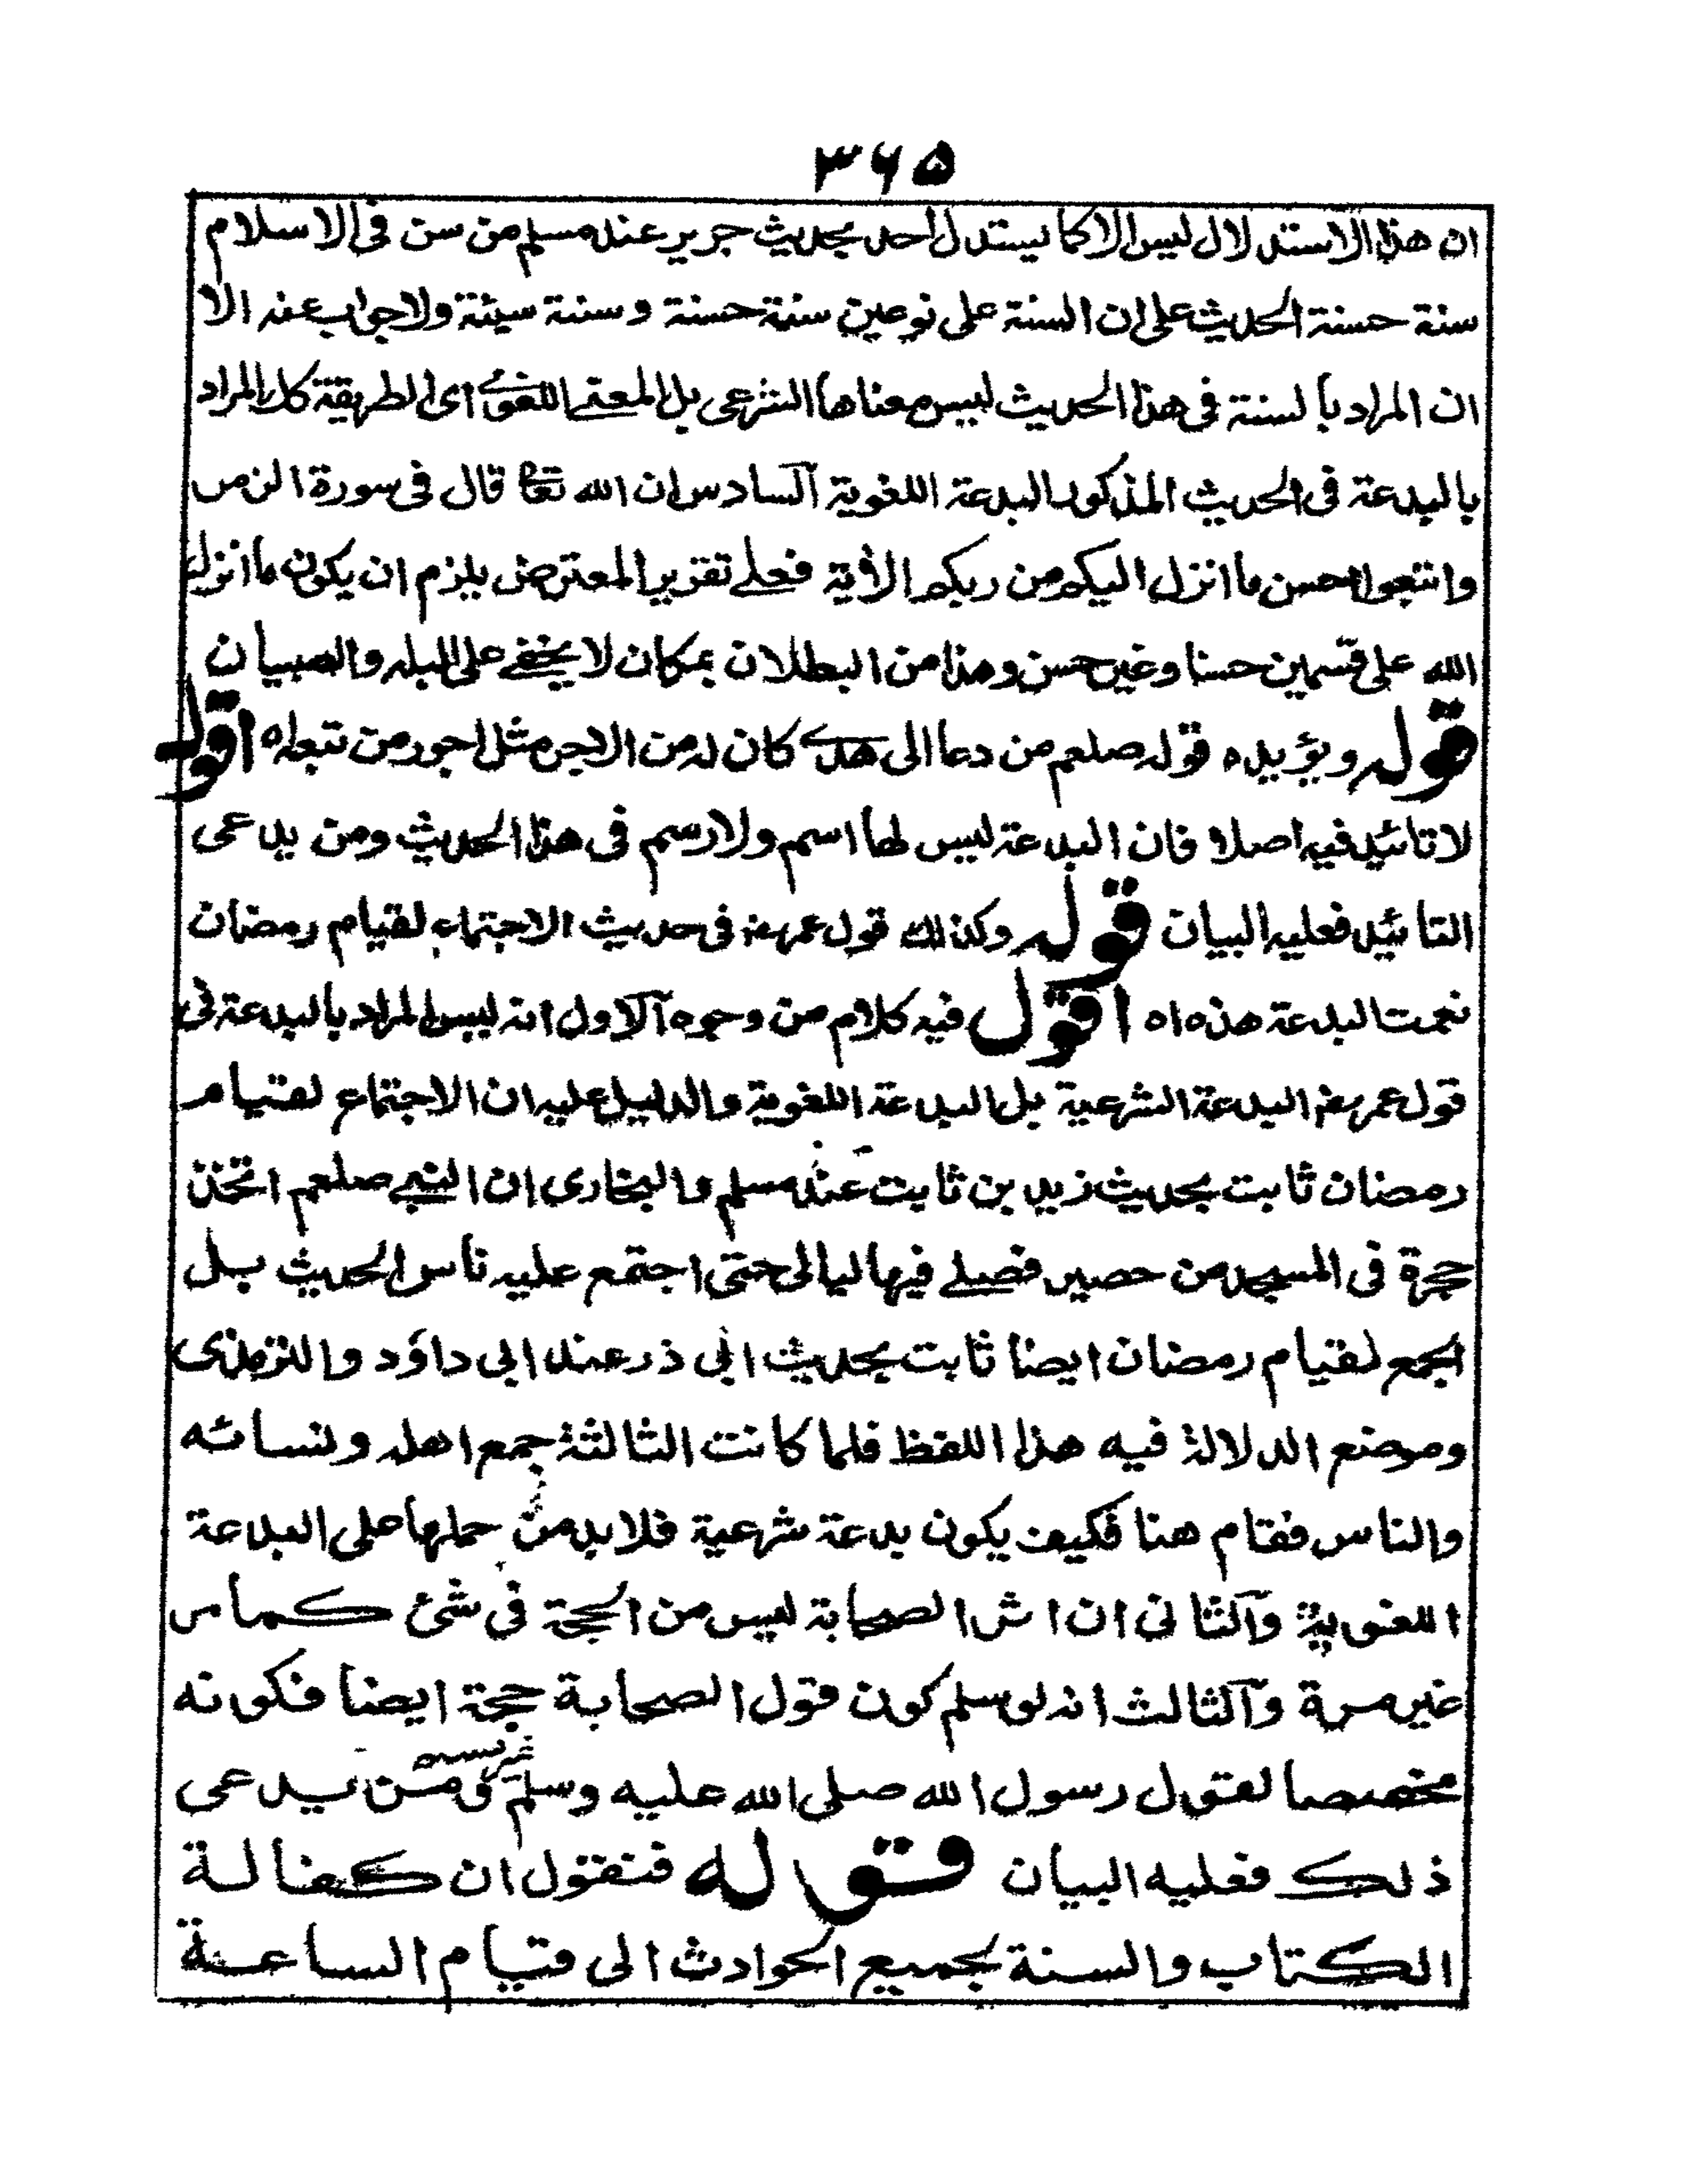 ۳۶۵
ان هذا الاستدلال ليس الا كما يستدل احد بحديث جرير عند مسلم من سن فى الاسلام
سنة حسنة الحديث على ان السنة على نوعين سنة حسنة و سنة سيئة ولا جواب عنه الا
ان المراد بالسنة فى هذا الحديث ليس معناها الشرعى بل المعنى اللغوى اى الطريقة كك المراد
بالبدعة فى الحديث المذكور البدعة اللغوية السادس ان الله تعا قال فى سورة الزمر
واتبعوا احسن ما انزل اليكم من ربكم الأية فعلى تقرير المعترض يلزم ان يكون ما انزل
الله على قسمين حسنا وغير حسن وهذا من البطلان بمكان لا يخفى على البله والصبيان
قوله ويؤيده قوله صلعم من دعا الى هدى كان له من الاجر مثل اجور من تبعه اه اقول
لا تائيد فيه اصلا فان البدعة ليس لها اسم ولا رسم فى هذا الحديث ومن يدعى
التائيد فعليه البيان قوله وكذلك قول عمر رضہ فى حديث الاجتماع لقيام رمضان
نعمت البدعة هذه اه اقول فيه كلام من وجوه آلاول انه ليس المراد بالبدعة فى
قول عمر رضہ البدعة الشرعية بل البدعة اللغوية والدليل عليه ان الاجتماع لقيام
رمضان ثابت بحديث زيد بن ثابت عند مسلم والبخارى ان النبى صلعم اتخذ
حجرة فى المسجد من حصير فصلى فيها ليالى حتى اجتمع عليه ناس الحديث بل
الجمع لقيام رمضان ايضا ثابت بحديث ابى ذر عند ابى داؤد والترمذى
وموضع الدلالة فيه هذا اللفظ فلما كانت الثالثة جمع اهله ونسائه
والناس فقام هنا فكيف يكون بدعة شرعية فلا بد من حملها على البدعة
اللغوية وآلثانى ان اثر الصحابة ليس من الحجة فى شئ كما مر
غير مرة وآلثالث انه لو سلم كون قول الصحابة حجة ايضا فكونه
مخصصا لقول رسول الله صلى الله عليه وسلم ومن يدعى
ذلك فعليه البيان قوله فنقول ان كفالة
الكتاب والسنة بجميع الحوادث الى قيام الساعة